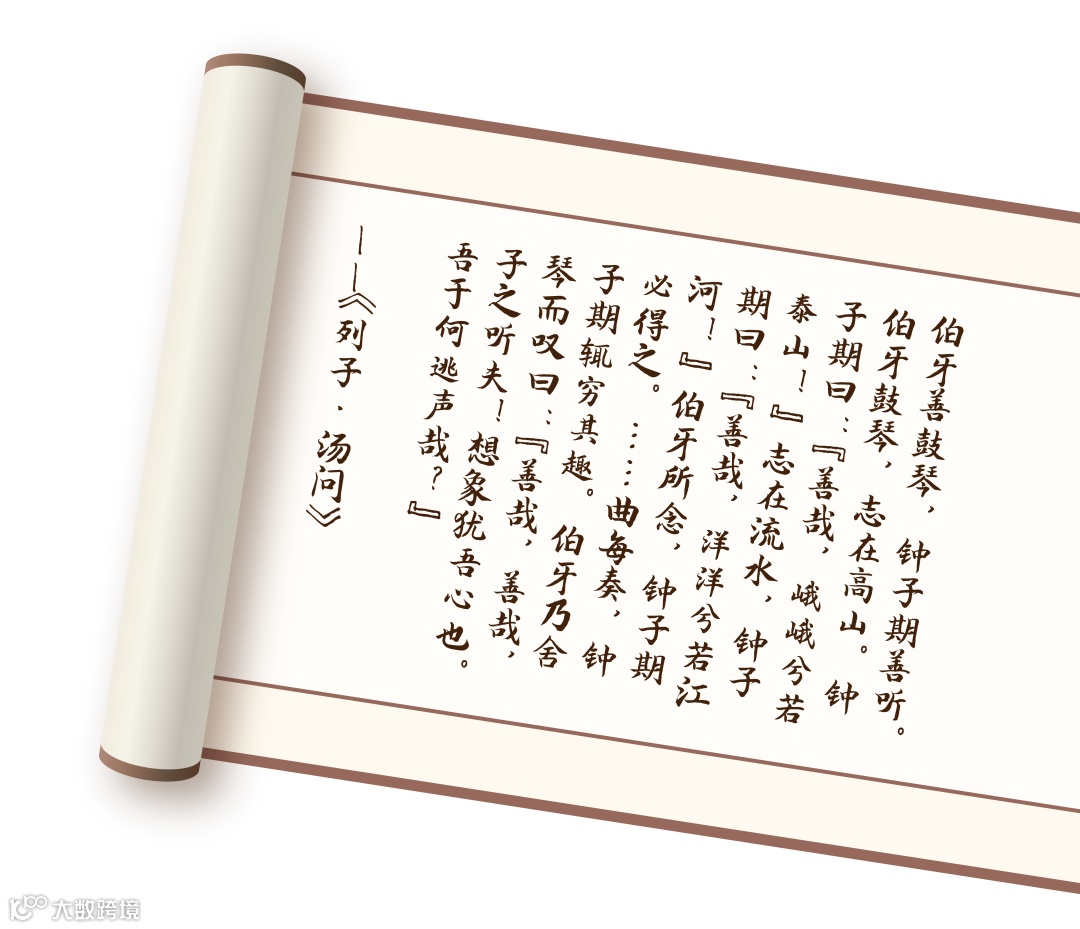 伯牙善鼓琴，钟子期善听。
伯牙鼓琴，志在高山。钟
子期曰：『善哉，峨峨兮若
泰山！』志在流水，钟子
期曰：『善哉，洋洋兮若江
河！』伯牙所念，钟子期
必得之。……曲每奏，钟
子期辄穷其趣。伯牙乃舍
琴而叹曰：『善哉，善哉，
子之听夫！想象犹吾心也。
吾于何逃声哉？』
——《列子·汤问》
大数跨境